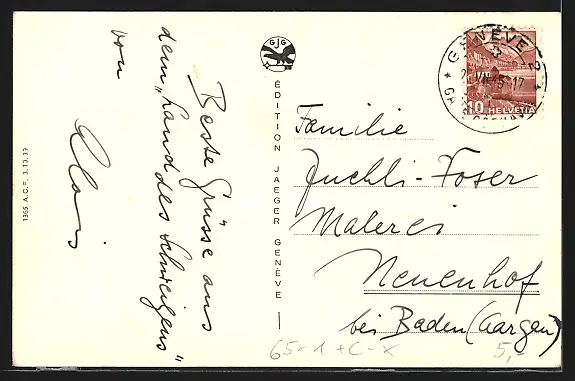 Beste Grüsse aus
dem „Land des Schweigens“
von
Alois
1365 A.C.F. 3.10.39
GJG
EDITION JAEGER GENÈVE
GENÈVE 2
10 HELVETIA
Familie
Zuchli-Foser
Malerei
Neuenhof
bei Baden (Aargau)
65-1+C-X
5,-